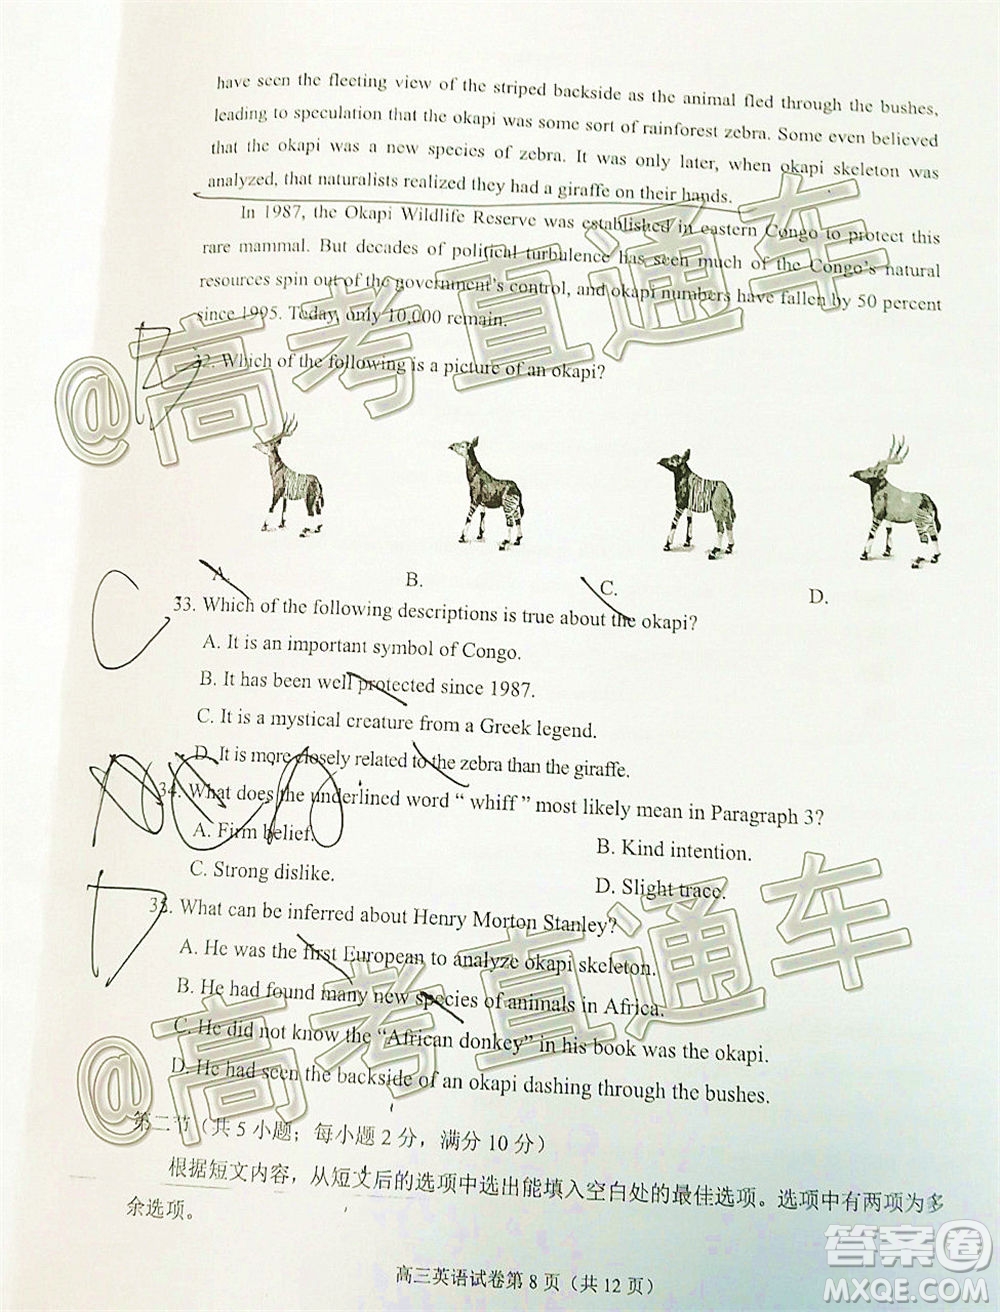 have seen the fleeting view of the striped backside as the animal fled through the bushes,
leading to speculation that the okapi was some sort of rainforest zebra. Some even believed
that the okapi was a new species of zebra. It was only later, when okapi skeleton was
analyzed, that naturalists realized they had a giraffe on their hands.
In 1987, the Okapi Wildlife Reserve was established in eastern Congo to protect this
rare mammal. But decades of political turbulence has seen much of the Congo's natural
resources spin out of the government's control, and okapi numbers have fallen by 50 percent
since 1995. Today, only 10,000 remain.
B
32. Which of the following is a picture of an okapi?
A.
B.
C.
D.
C
33. Which of the following descriptions is true about the okapi?
A. It is an important symbol of Congo.
B. It has been well protected since 1987.
C. It is a mystical creature from a Greek legend.
D. It is more closely related to the zebra than the giraffe.
34. What does the underlined word “ whiff ” most likely mean in Paragraph 3?
A. Firm belief.
B. Kind intention.
C. Strong dislike.
D. Slight trace.
D
35. What can be inferred about Henry Morton Stanley?
A. He was the first European to analyze okapi skeleton.
B. He had found many new species of animals in Africa.
C. He did not know the “African donkey” in his book was the okapi.
D. He had seen the backside of an okapi dashing through the bushes.
第二节（共 5 小题；每小题 2 分，满分 10 分）
根据短文内容，从短文后的选项中选出能填入空白处的最佳选项。选项中有两项为多
余选项。
高三英语试卷第 8 页（共 12 页）
@高考直通车
@高考直通车
答案圈
MXQE.COM